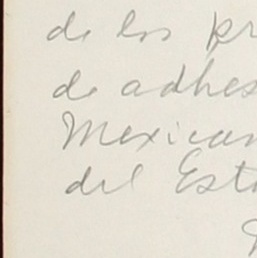 de los pr
de adhes
Mexican
del Esta